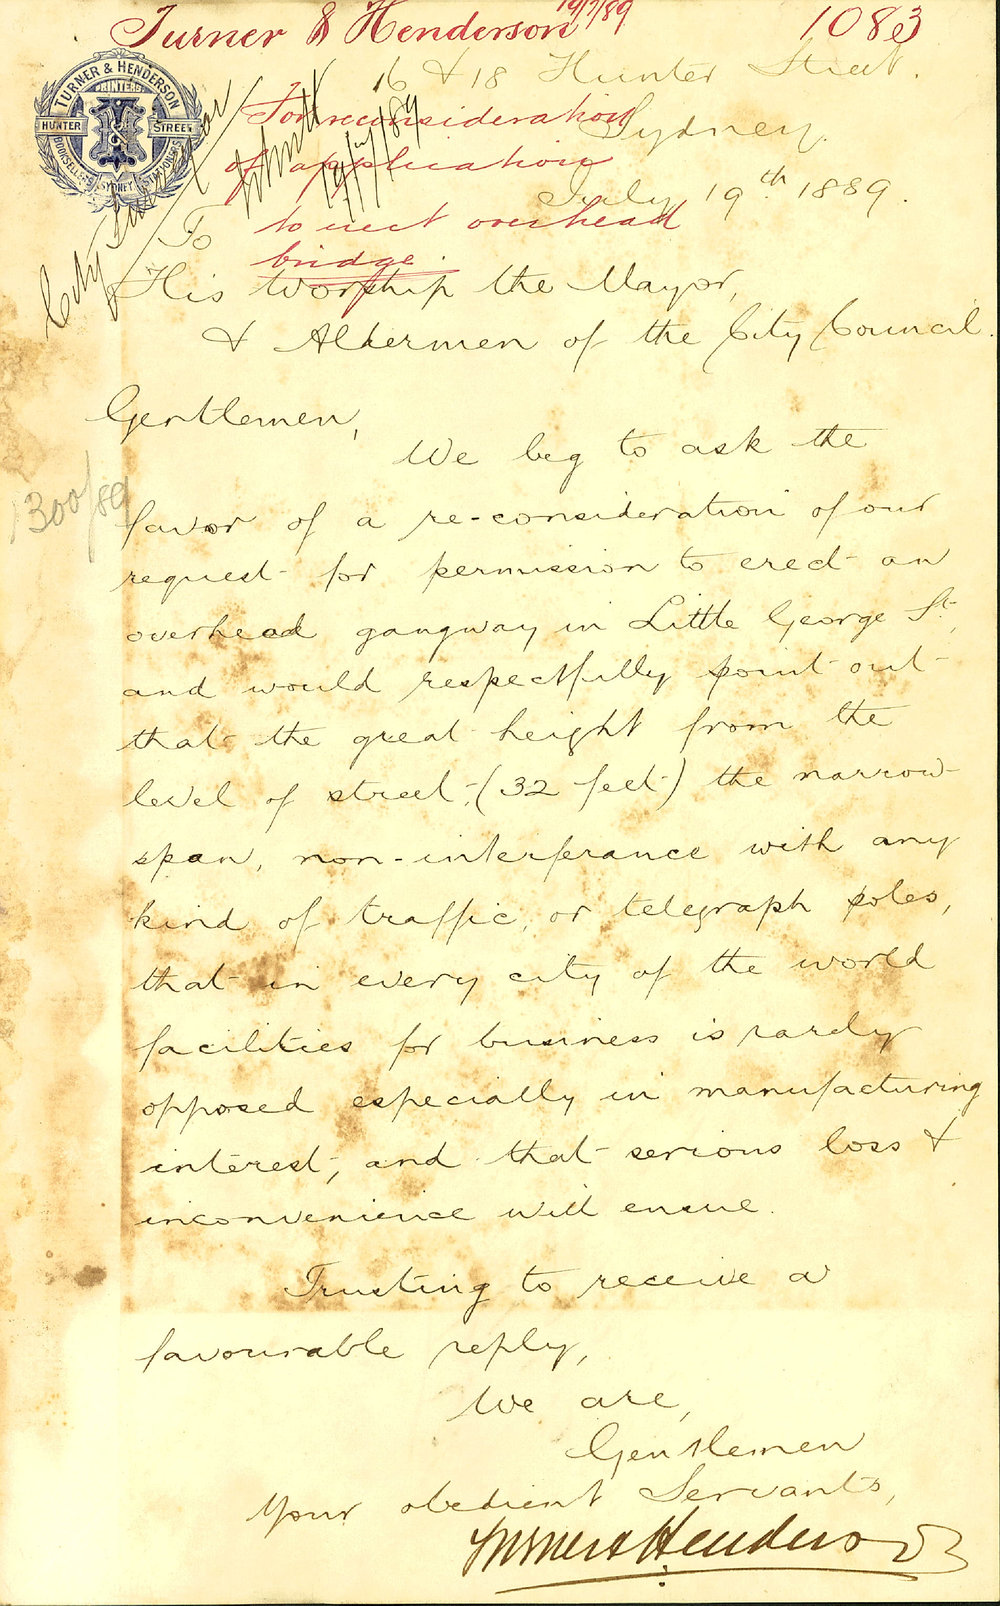 Turner & Henderson 19/7/89
1083
TURNER & HENDERSON
PRINTERS
HUNTER STREET
BOOKSELLERS SYDNEY STATIONERS
16 & 18 Hunter Street.
Sydney
July 19th 1889.
For reconsideration
of application
to erect overhead
bridge.
City Surveyor
19/7/89
1300/89
To
His Worship the Mayor,
& Aldermen of the City Council.
Gentlemen,
We beg to ask the
favor of a re-consideration of our
request for permission to erect an
overhead gangway in Little George St,
and would respectfully point out
that the great height from the
level of street, (32 feet) the narrow
span, non-interferance with any
kind of traffic, or telegraph poles,
that in every city of the world
facilities for business is rarely
opposed especially in manufacturing
interest, and that serious loss &
inconvenience will ensue.
Trusting to receive a
favourable reply,
We are,
Gentlemen
Your obedient Servants,
Turner & Henderson